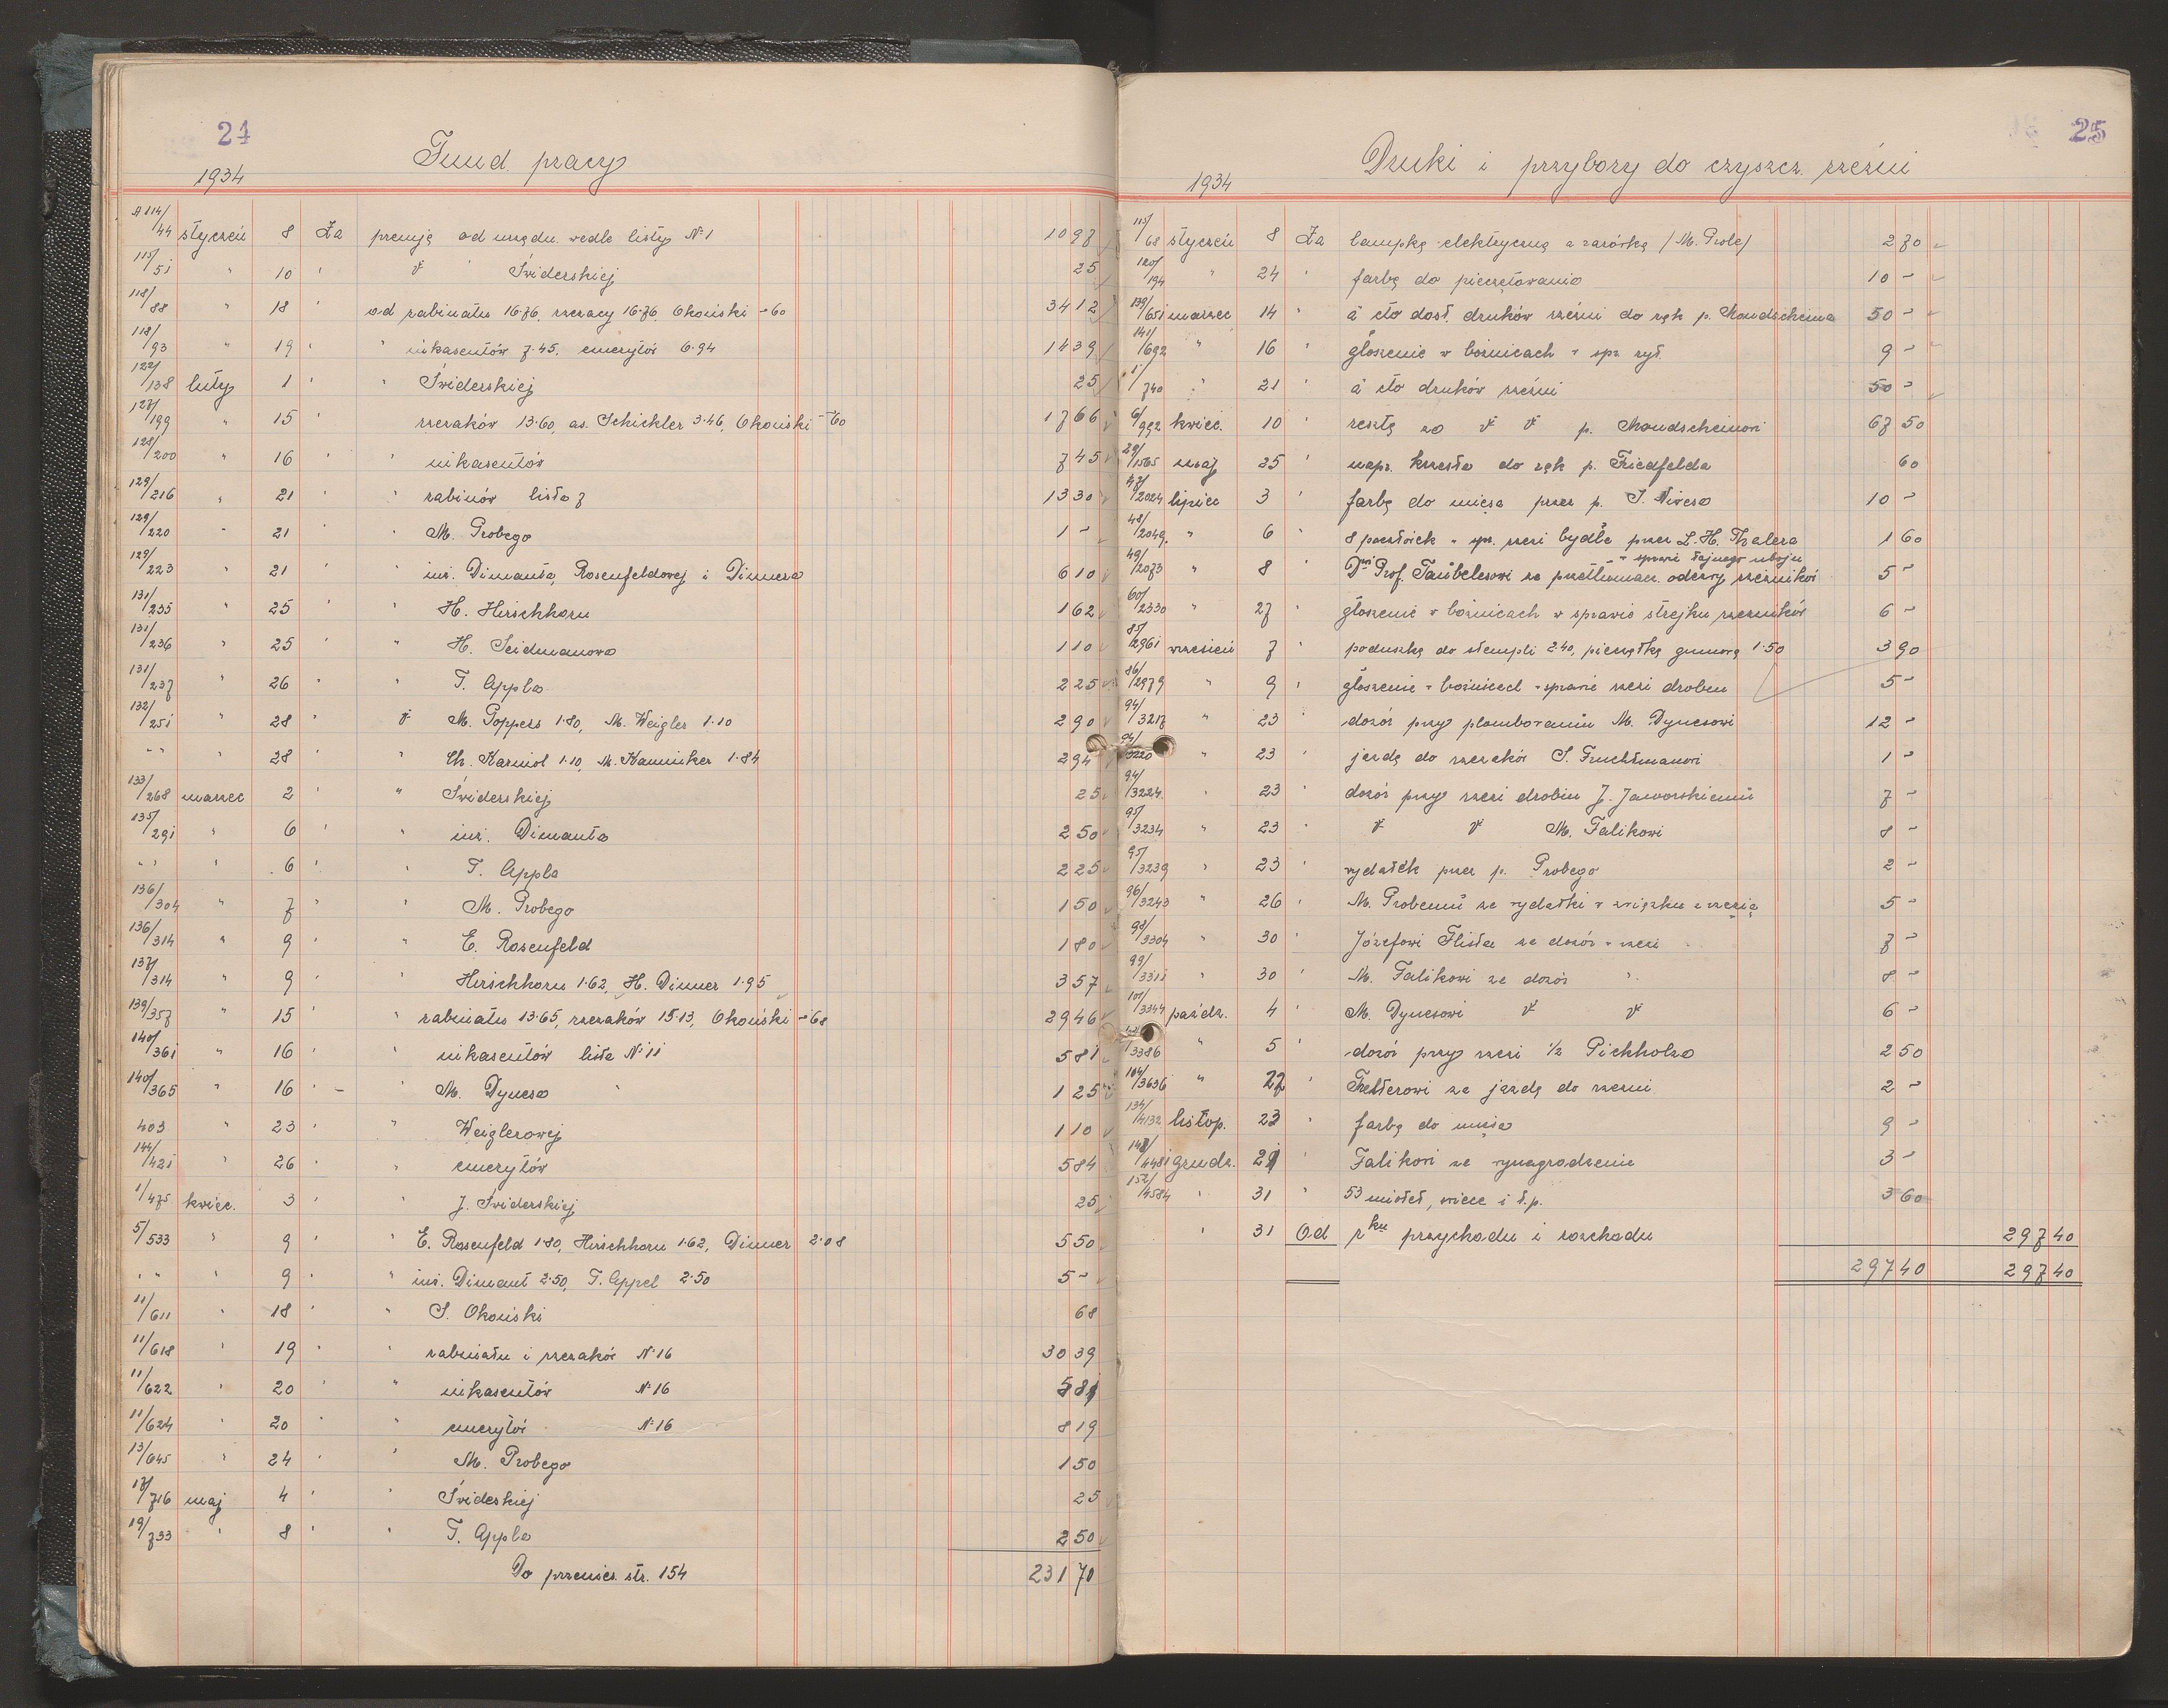 24
Fund. pracy
1934
A 114/44 styczeń 8 Za premję od urzędu. wedle listy № 1 10 97
115/51 " 10 " " Świderskiej 25
118/88 " 18 " od rabinatu 16.76, rzezacy 16.76, Okoński -.60 34 12
118/93 " 19 " " inkasentów 7.45, emerytów 6.94 14 39
122/138 luty 1 " " Świderskiej 25
127/199 " 15 " rzezaków 13.60, as. Schickler 3.46, Okoński -.60 17 66
128/200 " 16 " " inkasentów 7 45
129/216 " 21 " " rabinów lista 7 13 30
129/220 " 21 " M. Probego 1 -
129/223 " 21 " " inż. Dimanta, Rosenfeldowej i Dimnera 6 10
131/235 " 25 " " H. Hirschhorn 1 62
131/236 " 25 " " H. Seidmanowa 1 10
131/237 " 26 " " T. Appla 2 25
132/251 " 28 " " M. Poppers 1.80, M. Weigler 1.10 2 90
" " " 28 " Ch. Karmiol 1.10, M. Kaminker 1.84 2 94
133/268 marzec 2 " " Świderskiej 25
135/291 " 6 " " inż. Dimanta 2 50
" " " 6 " " T. Appla 2 25
136/304 " 7 " " M. Probego 1 50
136/314 " 9 " " E. Rosenfeld 1 80
137/314 " 9 " " Hirschhorn 1.62, H. Dimner 1.95 3 57
139/357 " 15 " " rabinatu 13.65, rzezaków 15.13, Okoński -.68 29 46
140/361 " 16 " " inkasentów lista № 11 5 81
140/365 " 16 " - " M. Dynesa 1 25
403 " 23 " " Weiglerowej 1 10
144/421 " 26 " " emerytów 5 84
1/475 kwiec. 3 " " J. Świderskiej 25
5/533 " 9 " " E. Rosenfeld 1.80, Hirschhorn 1.62, Dimner 2.08 5 50
" " " 9 " " inż. Dimant 2.50, T. Appel 2.50 5 -
11/611 " 18 " " S. Okoński 68
11/618 " 19 " " rabinatu i rzezaków № 16 30 39
11/622 " 20 " " inkasentów № 16 5 81
11/624 " 20 " " emerytów № 16 8 19
13/645 " 24 " " M. Probego 1 50
17/716 maj 4 " " Śwideskiej 25
19/733 " 8 " " T. Appla 2 50
Do przenies. str. 154 231 70
25
Druki i przybory do czyszcz. rzeźni
1934
115/68 styczeń 8 Za lampkę elektryczną z żarówką /M. Probe/ 2 70
120/194 " 24 " farbę do pieczętowania 10 -
139/651 marzec 14 " à cto dost. druków rzeźni do rąk p. Mondscheina 50 -
141/692 " 16 " głoszenie w bóżnicach w spr. ryt. 9 -
1/740 " 21 " à cto druków rzeźni 50 -
6/992 kwiec. 10 " resztę za " " p. Mondscheinowi 67 50
29/1565 maj 25 " napr. krzesła do rąk p. Friedfelda 60
47/2024 lipiec 3 " farbę do mięsa przez p. S. Dinesa 10 -
48/2049 " 6 " 8 pocztówek w spr. rzezi bydła przez L. H. Thalera 1 60
w sprawie tajnego uboju
49/2073 " 8 " Dr Prof. Taubelesowi za przetłumacz. odezwy rzezników 5 -
60/2330 " 27 " głoszenie w bóżnicach w sprawie strejku rzezników 6 -
85/2961 wrzesień 7 " poduszkę do stempli 2.40, pieczątkę gumową 1.50 3 90
86/2979 " 9 " głoszenie w bóżnicach w sprawie rzezi drobiu 5 -
94/3217 " 23 " dozór przy plombowaniu M. Dynesowi 12 -
94/3220 " 23 " jazdę do rzezaków S. Fruchtmanowi 1 -
94/3224 " 23 " dozór przy rzezi drobiu J. Jaworskiemu 7 -
95/3234 " 23 " " " M. Falikowi 8 -
95/3239 " 23 " wydatek przez p. Probego 2 -
96/3243 " 26 " M. Probemu za wydatki w związku z rzezią 5 -
98/3304 " 30 " Józefowi Flista za dozór w rzezi 7 -
99/3311 " 30 " M. Falikowi za dozór " 8 -
101/3344 paźdz. 4 " M. Dynesowi " " 6 -
/3386 " 5 " dozór przy rzezi 1/2 Pichholza 2 50
104/3636 " 27 " za jazdę do rzezni 2 -
134/4132 listop. 23 " farbę do mięsa 9 -
148/4481 grudz. 21 " Falikowi za wynagrodzenie 3 -
152/4584 " 31 " 53 mioteł, wiece i t.p. 3 60
" 31 Od rku przychodu i rozchodu 297 40
297 40 297 40